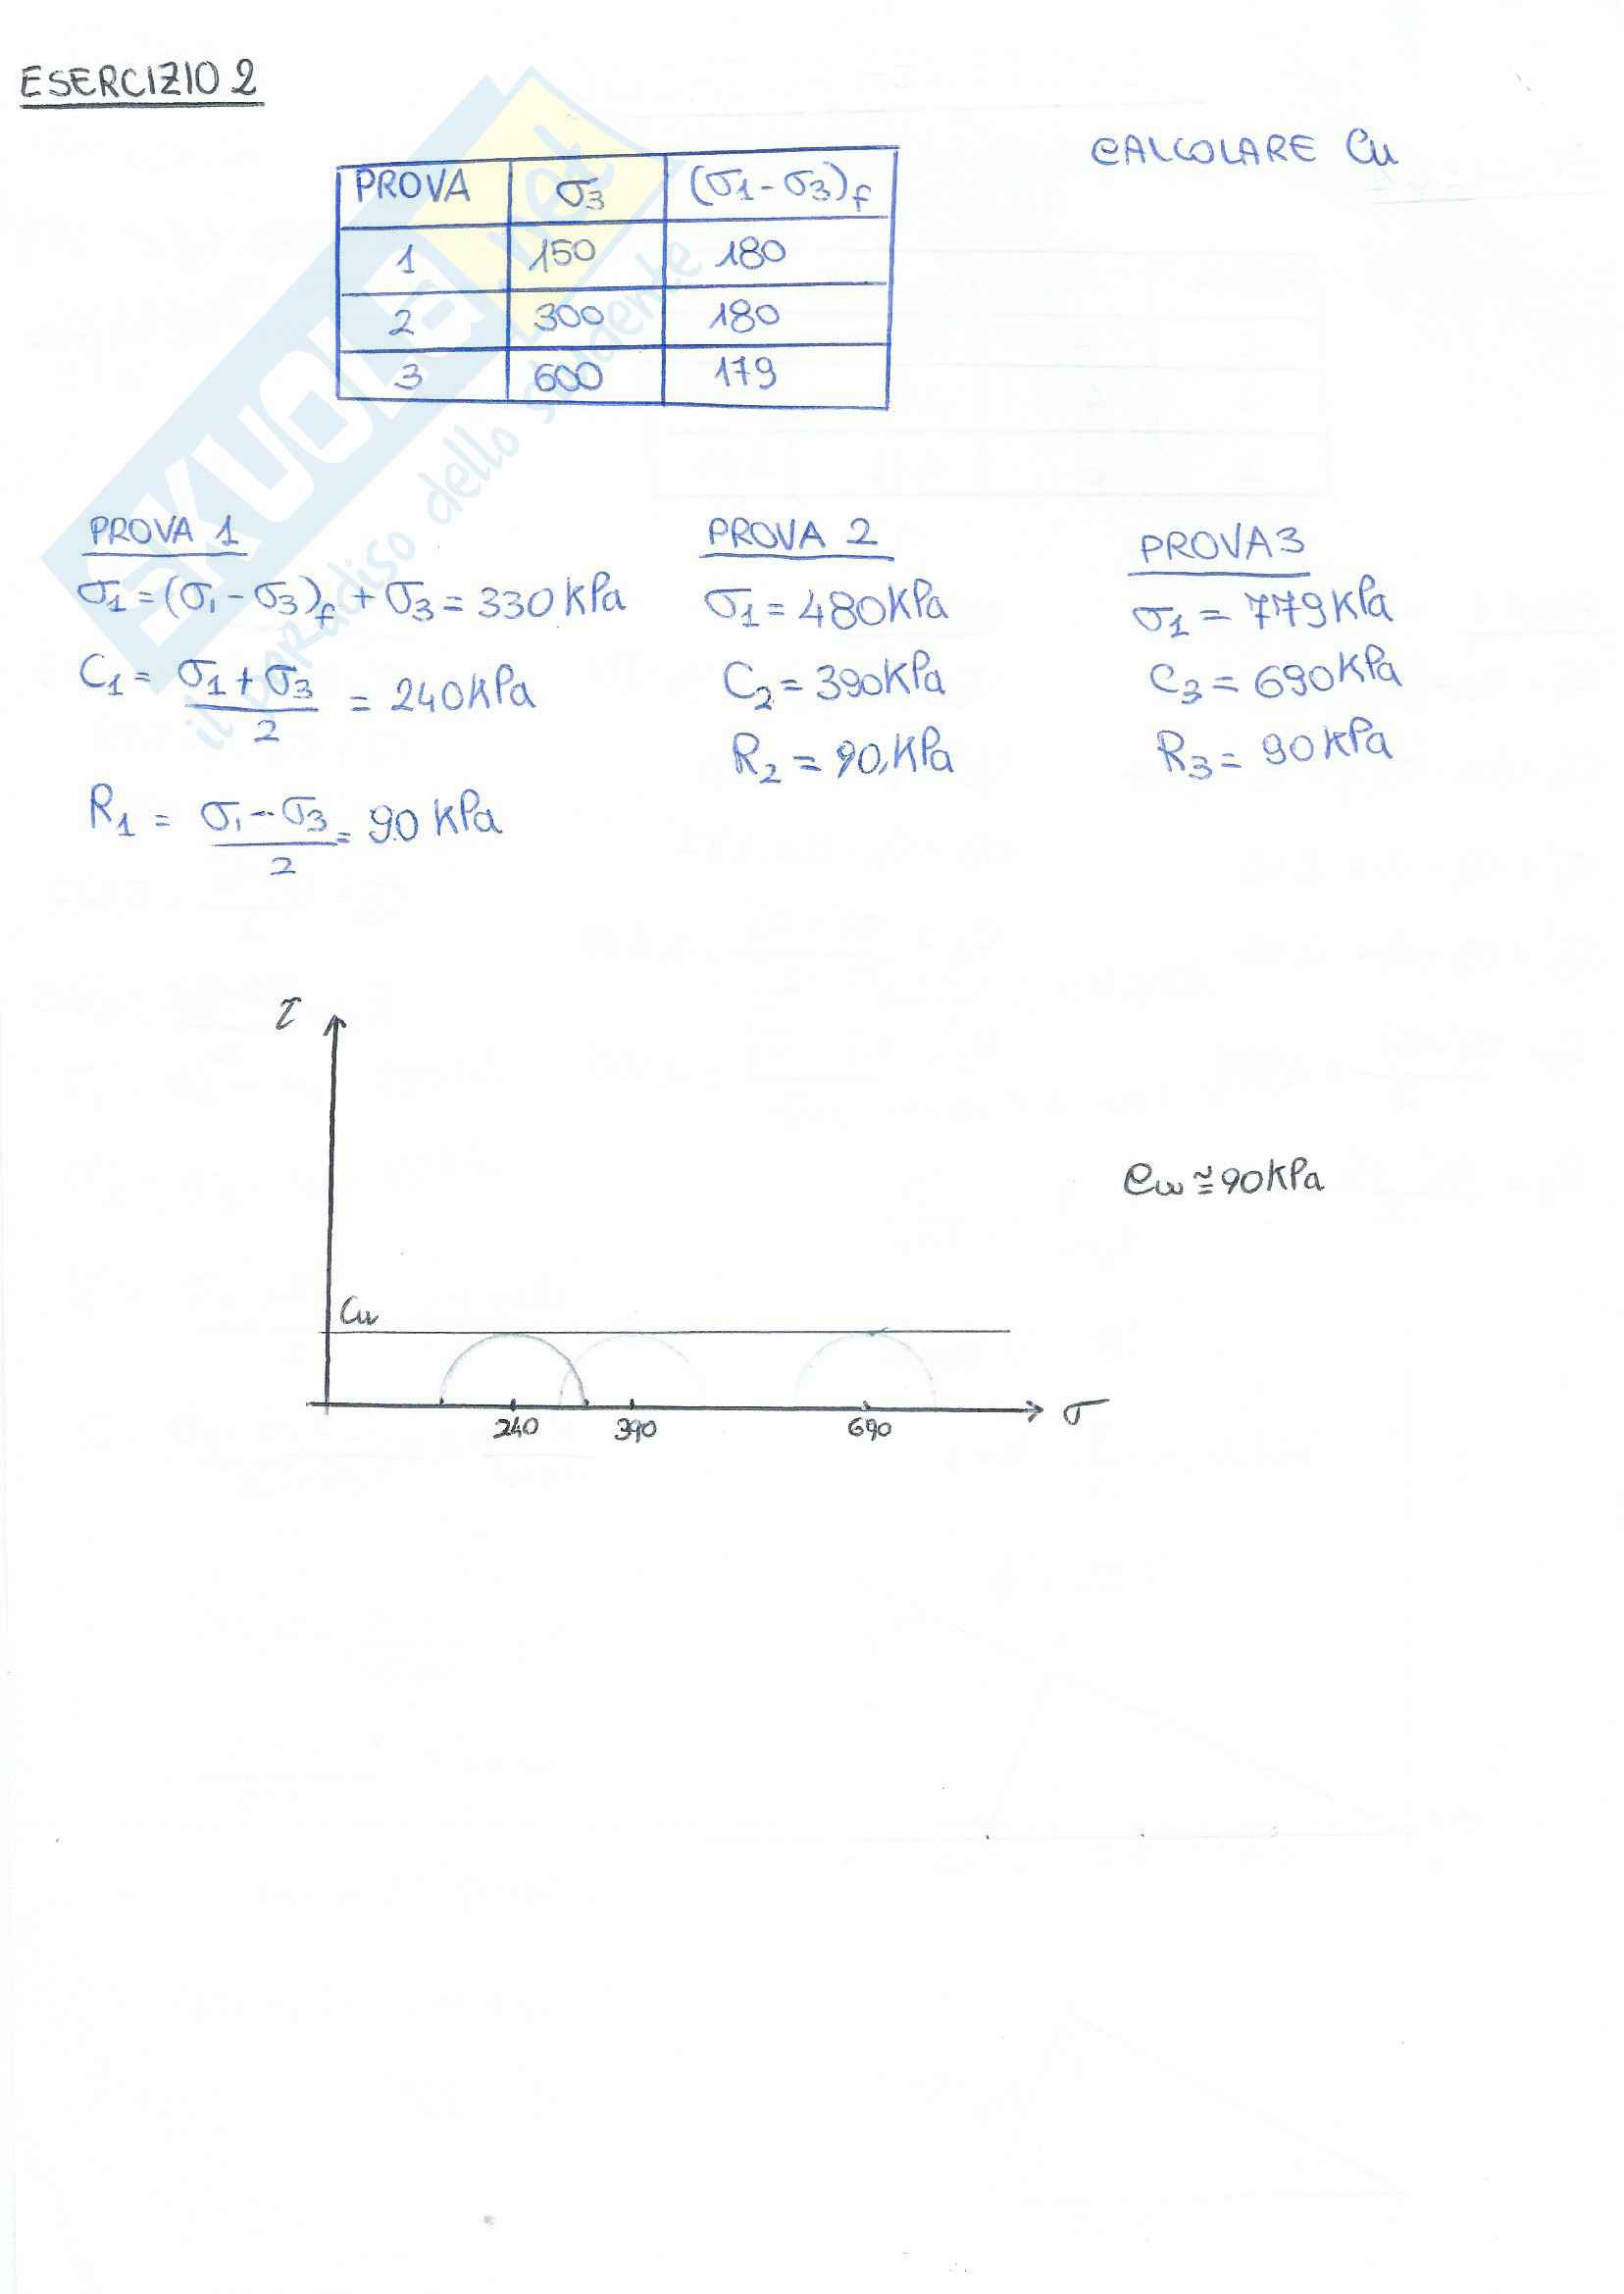 ESERCIZIO 2
CALCOLARE Cu
PROVA σ3 (σ1-σ3)f
1 150 180
2 300 180
3 600 179
SKUOLA.net
il paradiso dello studente
PROVA 1
σ1 = (σ1 - σ3)f + σ3 = 330 kPa
C1 = σ1 + σ3 / 2 = 240 kPa
R1 = σ1 - σ3 / 2 = 90 kPa
PROVA 2
σ1 = 480 kPa
C2 = 390 kPa
R2 = 90 kPa
PROVA 3
σ1 = 779 kPa
C3 = 690 kPa
R3 = 90 kPa
τ
Cu ≅ 90 kPa
Cu
240 390 690 σ